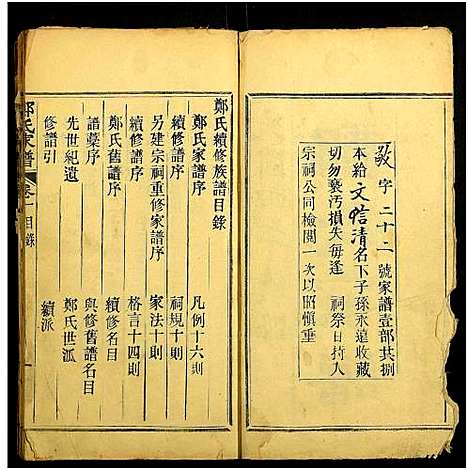 敬字二十二號家譜壹部共捌
本給文㤓清名下子孫永遠收藏
切勿褻汚損失每逢 祠祭日持入
宗祠公同檢閱一次以昭慎重
鄭氏續修族譜目錄
鄭氏家譜序 凡例十六則
續修譜序 祠規十則
另建宗祠重修家譜序 家法十則
續修譜序 格言十四則
鄭氏舊譜序 續修名目
譜藁序 與修舊譜名目
先世紀遺 鄭氏世派
修譜引 續派
鄭氏家譜 卷一目錄 一